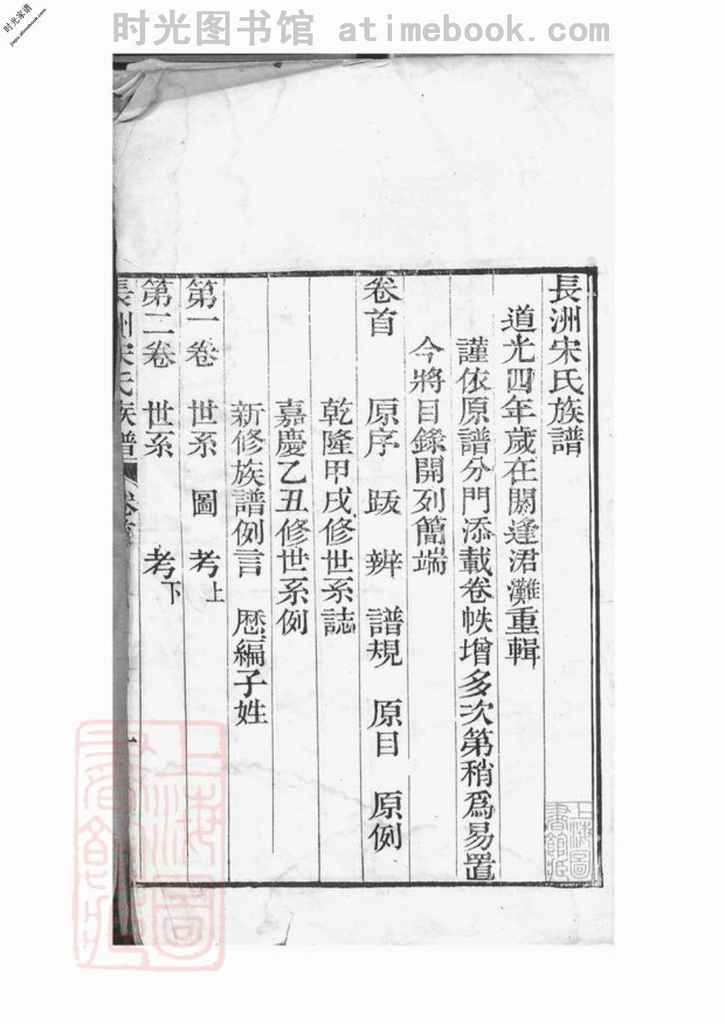 时光图书馆 atimebook.com
时光家谱
長洲宋氏族譜
道光四年歲在閼逢涒灘重輯
謹依原譜分門添載卷帙增多次第稍爲易置
今將目錄開列簡端
卷首 原序 跋 辨 譜規 原目 原例
乾隆甲戌修世系誌
嘉慶乙丑修世系例
新修族譜例言 歴編子姓
第一卷 世系 圖 考上
第二卷 世系 考下
長洲宋氏族譜 卷首 一
上海圖書館藏
上海圖書館藏